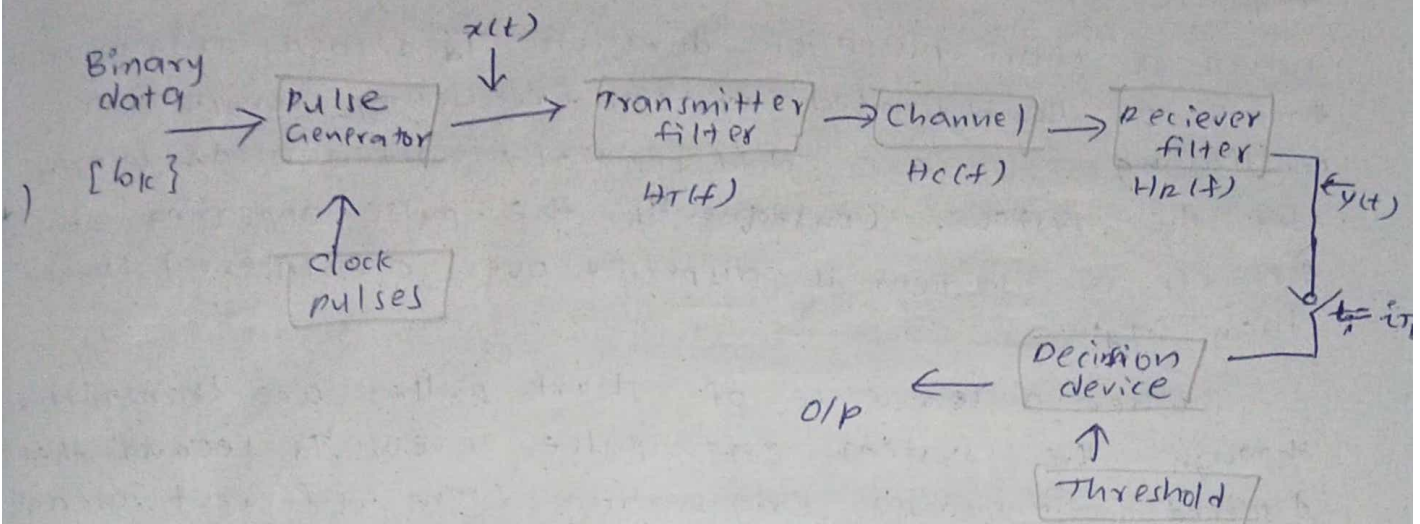 x(t)
Binary
data
{bk}
Pulse
Generator
Transmitter
filter
HT(f)
Channel
Hc(f)
Reciever
filter
HR(f)
y(t)
Clock
pulses
Decision
device
O/p
Threshold